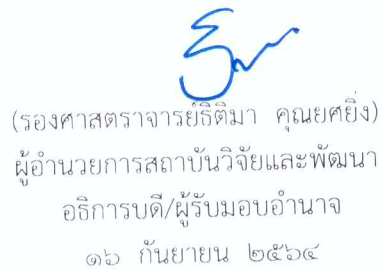 (รองศาสตราจารย์ธิติมา คุณยศยิ่ง)
ผู้อำนวยการสถาบันวิจัยและพัฒนา
อธิการบดี/ผู้รับมอบอำนาจ
๑๖ กันยายน ๒๕๖๔